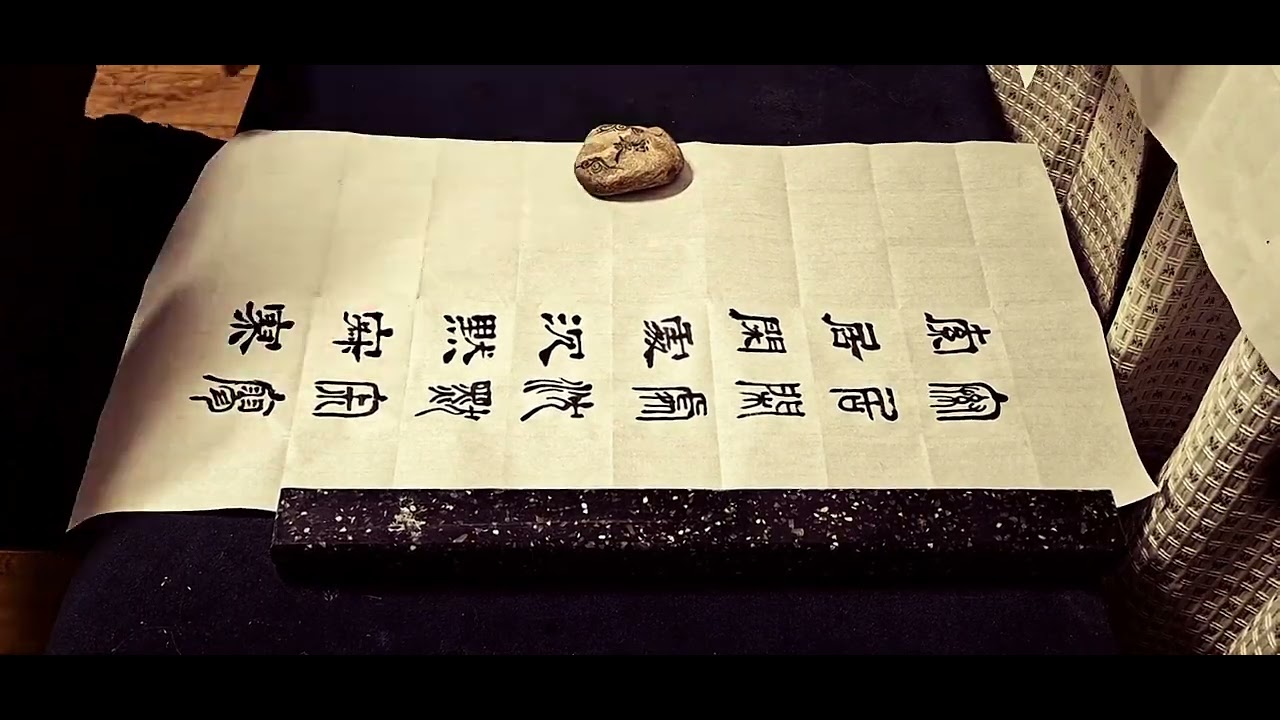 索居閑處沉默寂寥
索居閑處沉默寂寥